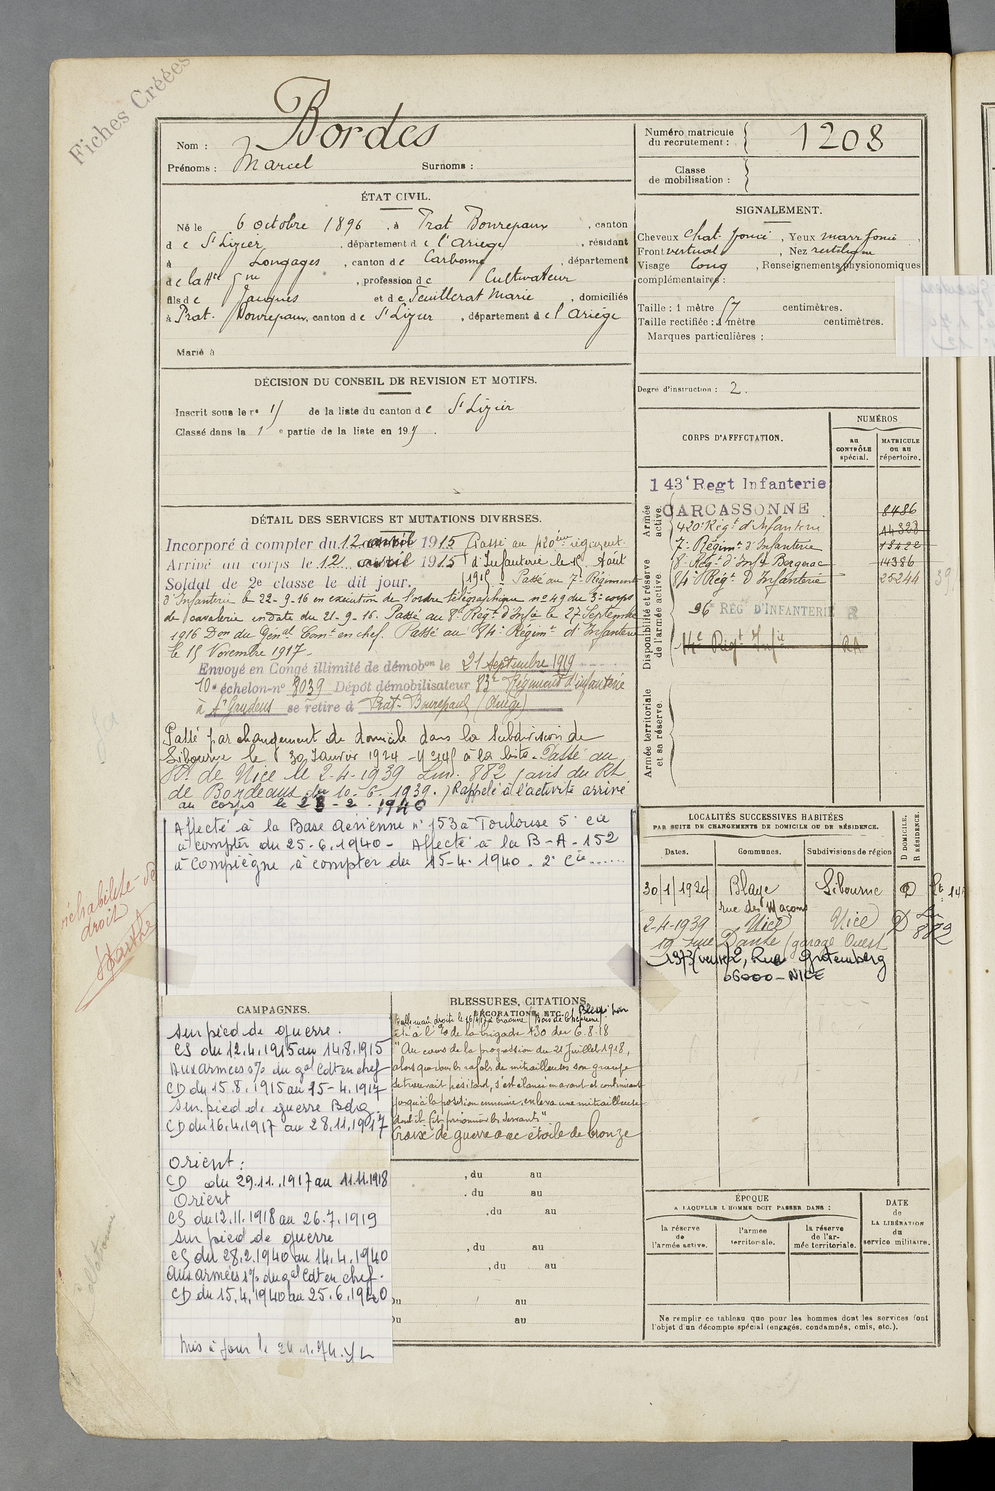 Fiches Créées
Nom : Bordes
Prénoms : Marcel Surnoms :
Numéro matricule du recrutement : 1208
Classe de mobilisation :
ÉTAT CIVIL.
Né le 6 octobre 1896, à Prat Bonrepaux, canton
de St Lizier, département de l'Ariège, résidant
à Longages, canton de Carbonne, département
de la Hte Gne, profession de Cultivateur
fils de Jacques et de Feuillerat Marie, domiciliés
à Prat-Bonrepaux, canton de St Lizier, département de l'Ariège
Marié à
SIGNALEMENT.
Cheveux chat. foncé, Yeux marr foncé,
Front vertical, Nez rectiligne
Visage long, Renseignements physionomiques
complémentaires :
Taille : 1 mètre 57 centimètres.
Taille rectifiée : 1 mètre centimètres.
Marques particulières :
Degré d'instruction : 2.
DÉCISION DU CONSEIL DE REVISION ET MOTIFS.
Inscrit sous le no 15 de la liste du canton de St Lizier
Classé dans la 1e partie de la liste en 191
CORPS D'AFFECTATION.
NUMÉROS
AU CONTRÔLE spécial.
MATRICULE OU AU répertoire.
Armée active.
Disponibilité et réserve de l'armée active.
Armée territoriale et sa réserve.
143e Regt Infanterie
CARCASSONNE 8486
420e Régt d'Infanterie 14328
7e Régiment d'Infanterie 13422
8e Régt d'Inf Bergerac 14386
84e Régt d'Infanterie 25244
96e REG D'INFANTERIE R
14e Régt Infie RA
DÉTAIL DES SERVICES ET MUTATIONS DIVERSES.
Incorporé à compter du 12 avril 1915 Passé au 420ème régiment
Arrivé au corps le 12 avril 1915 d'Infanterie le 15 Août
Soldat de 2e classe le dit jour. 1915. Passé au 7e Régiment
d'Infanterie le 22-9-16 en exécution de l'ordre télégraphique no 49 du 3e corps
de cavalerie en date du 21-9-16. Passé au 8e Régt d'Infie le 27 Septembre
1916 Don du Génal Comt en chef. Passé au 84e Régimt d'Infanterie
le 15 Novembre 1917.
Envoyé en Congé illimité de démobon le 21 Septembre 1919
10e échelon-no 8039 Dépôt démobilisateur 83e Régiment d'infanterie
à St Gaudens se retire à Prat-Bonrepaux (Ariège)
Passé par changement de domicile dans la subdivision de
Libourne le 30 Janvier 1924 à la liste. Passé au
de Nice le 2-4-1939 Lim. 882 (avis du Rt
de Bordeaux du 10-6-1939.) Rappelé à l'activité arrivé
au corps le 28-2-1940
Affecté à la Base Aérienne no 153 à Toulouse 5e cie
à compter du 25-6-1940 - Affecté à la B-A-152
à Compiègne à compter du 15-4-1940. 2e cie
réhabilité de
droit
LOCALITÉS SUCCESSIVES HABITÉES
PAR SUITE DE CHANGEMENTS DE DOMICILE OU DE RÉSIDENCE.
Dates. Communes. Subdivisions de région D DOMICILE. R RÉSIDENCE.
30/1/1924 Blaye Libourne D
rue des Maçons
2-4-1939 Nice Nice D
19 rue Dante (garage Ouest 882
1973 2, Rue Gutemberg
06000-NICE
CAMPAGNES.
Sur pied de guerre.
CS du 12.4.1915 au 14.8.1915
Aux armées s/s du gal Cdt en chef
CD du 15.8.1915 au 15-4.1917
Sur pied de guerre Bdg.
CD du 16.4.1917 au 28.11.1917
Orient :
CD du 29.11.1917 au 11.11.1918
Orient
CS du 12.11.1918 au 26.7.1919
Sur pied de guerre
CS du 28.2.1940 au 14.4.1940
Aux armées s/s du gal Cdt en chef.
CD du 15.4.1940 au 25.6.1940
Mis à jour le 24.1.74.
BLESSURES, CITATIONS,
DÉCORATIONS, ETC.
Cité à l'o de la brigade 150 du 6.8.18
"Au cours de la progression du 21 Juillet 1918,
alors que sous les rafales de mitrailleuses son groupe
se trouvait hésitant, s'est élancé en avant et continuant
jusqu'à la position ennemie, enleva une mitrailleuse
dont il fit prisonniers les servants"
Croix de guerre avec étoile de bronze
, du au
, du au
, du au
, du au
, du au
Du au
Du au
ÉPOQUE
A LAQUELLE L'HOMME DOIT PASSER DANS :
la réserve de l'armée active. l'armée territoriale. la réserve de l'armée territoriale.
DATE de LA LIBÉRATION du service militaire.
Ne remplir ce tableau que pour les hommes dont les services font
l'objet d'un décompte spécial (engagés, condamnés, omis, etc.).